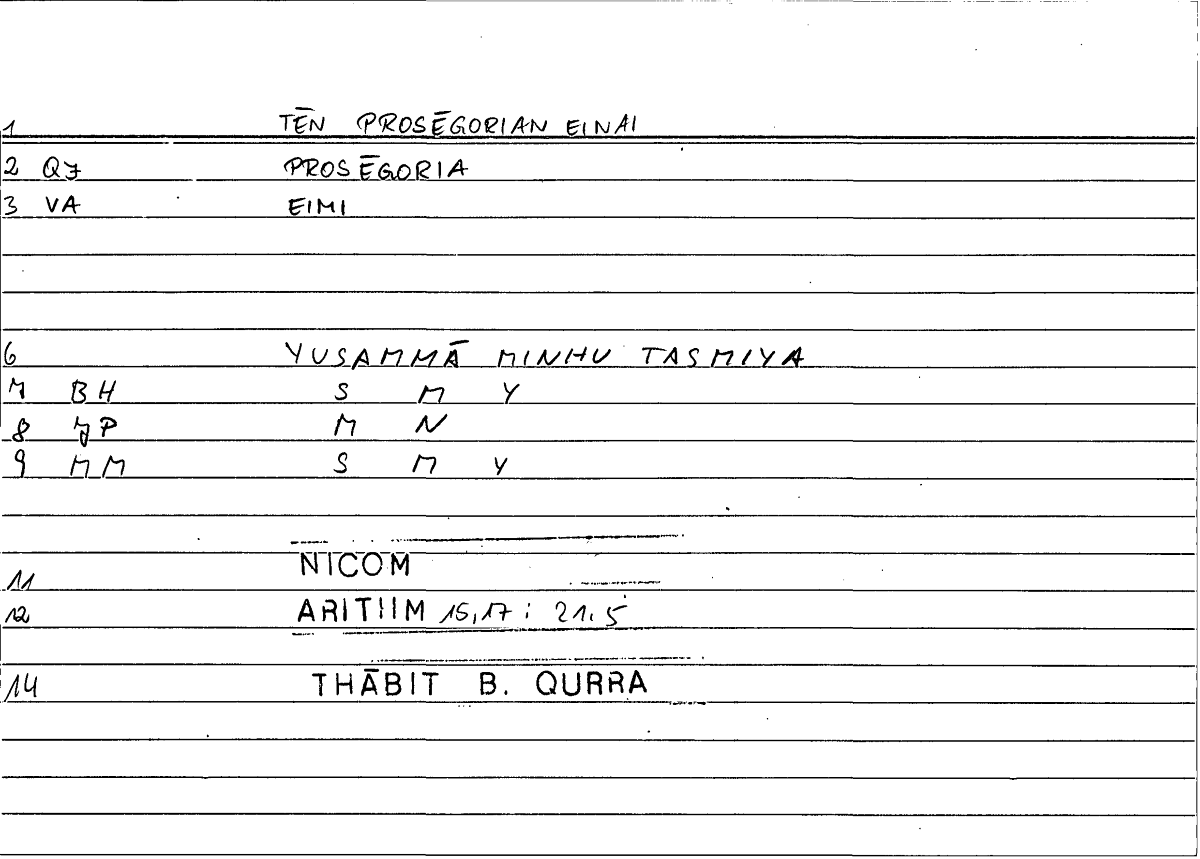 1 TĒN PROSĒGORIAN EINAI
2 QJ PROSĒGORIA
3 VA EIMI
6 YUSAMMĀ MINHU TASMIYA
7 BH S M Y
8 JP M N
9 MM S M Y
11 NICOM
12 ARITIIM 15,17 ; 21.5
14 THĀBIT B. QURRA